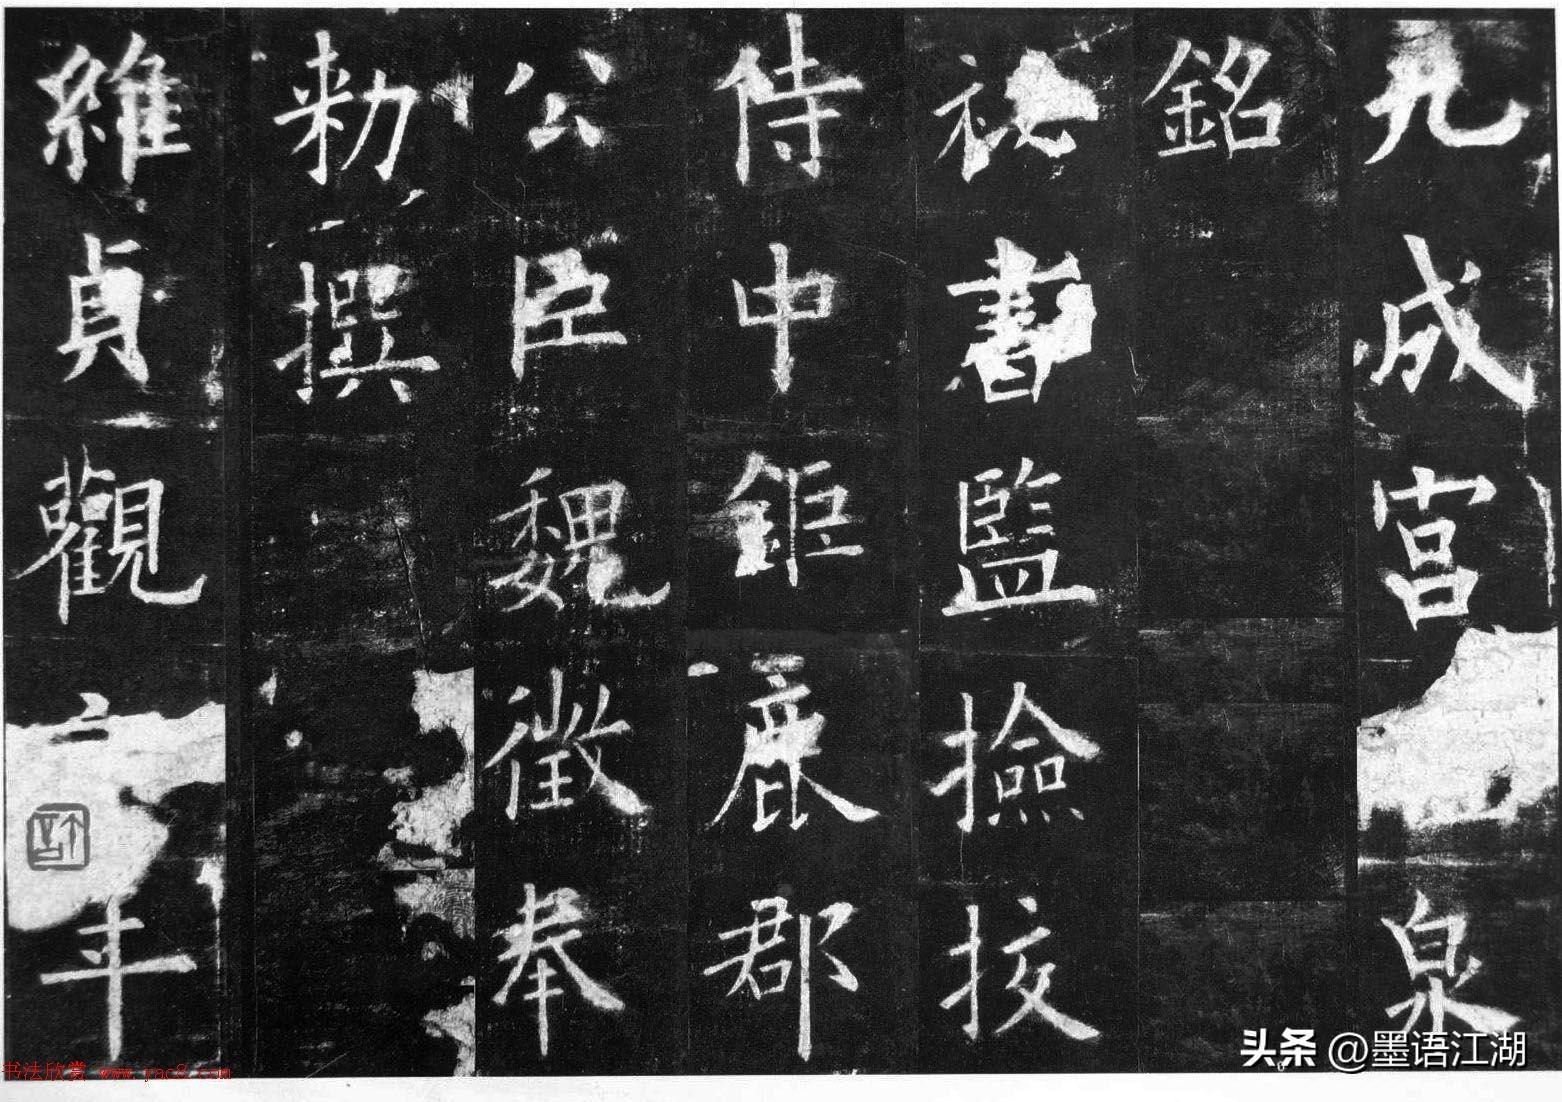 九成宫泉
銘
祕書監撿挍
侍中鉅鹿郡
公臣魏徵奉
勑撰
維貞觀六年
头条 @墨语江湖
书法欣赏 www.yac8.com